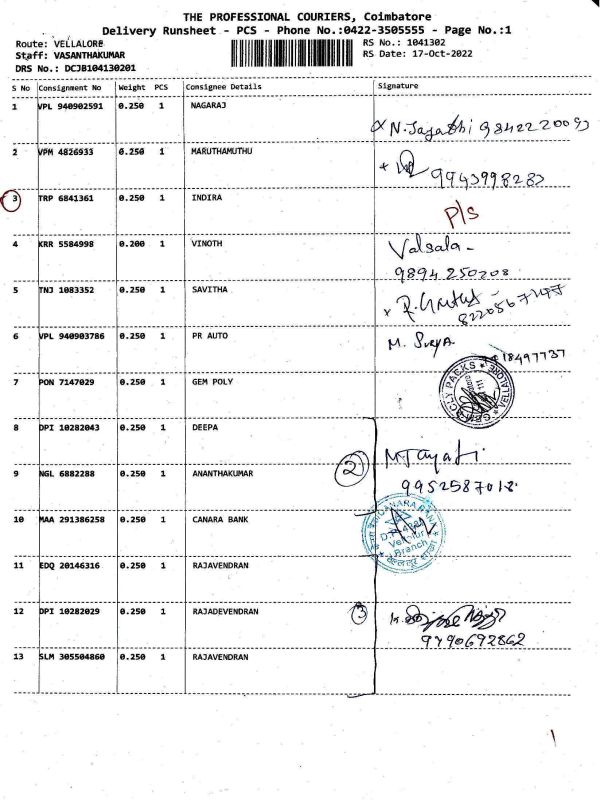 THE PROFESSIONAL COURIERS, Coimbatore
Delivery Runsheet - PCS - Phone No.:0422-3505555 - Page No.:1
Route: VELLALORE
RS No.: 1041302
Staff: VASANTHAKUMAR
RS Date: 17-Oct-2022
DRS No.: DCJB104130201
S No Consignment No Weight PCS Consignee Details Signature
1 VPL 940902591 0.250 1 NAGARAJ
2 VPM 4826933 0.250 1 MARUTHAMUTHU
9943998283
3 TRP 6841361 0.250 1 INDIRA
P/S
4 KRR 5584998 0.200 1 VINOTH Valsala -
9894250208
5 TNJ 1083352 0.250 1 SAVITHA
6 VPL 940903786 0.250 1 PR AUTO M. Surya
7 PON 7147029 0.250 1 GEM POLY
PACKS VELLALORE
8 DPI 10282043 0.250 1 DEEPA
9 NGL 6882288 0.250 1 ANANTHAKUMAR 2
9952587018
10 MAA 291386258 0.250 1 CANARA BANK
CANARA BANK
Branch
11 EDQ 20146316 0.250 1 RAJAVENDRAN
12 DPI 10282029 0.250 1 RAJADEVENDRAN 3
9790692862
13 SLM 305504860 0.250 1 RAJAVENDRAN